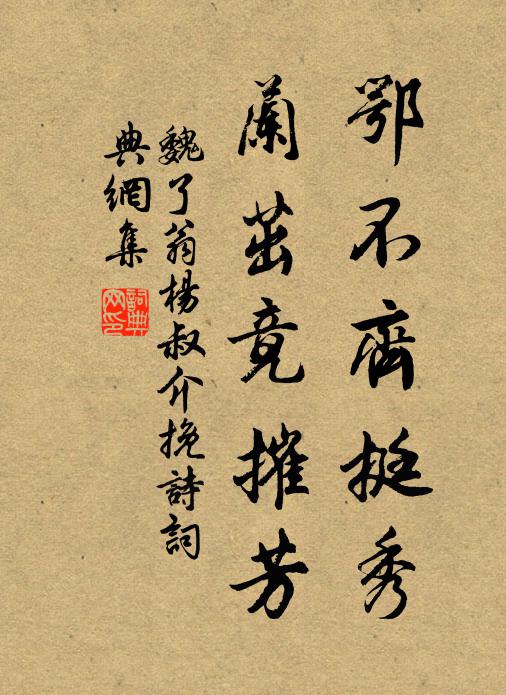 鄂不齊挺秀
蘭茁竟摧芳
魏了翁楊叔介挽詩詞
典網集
詞典网印